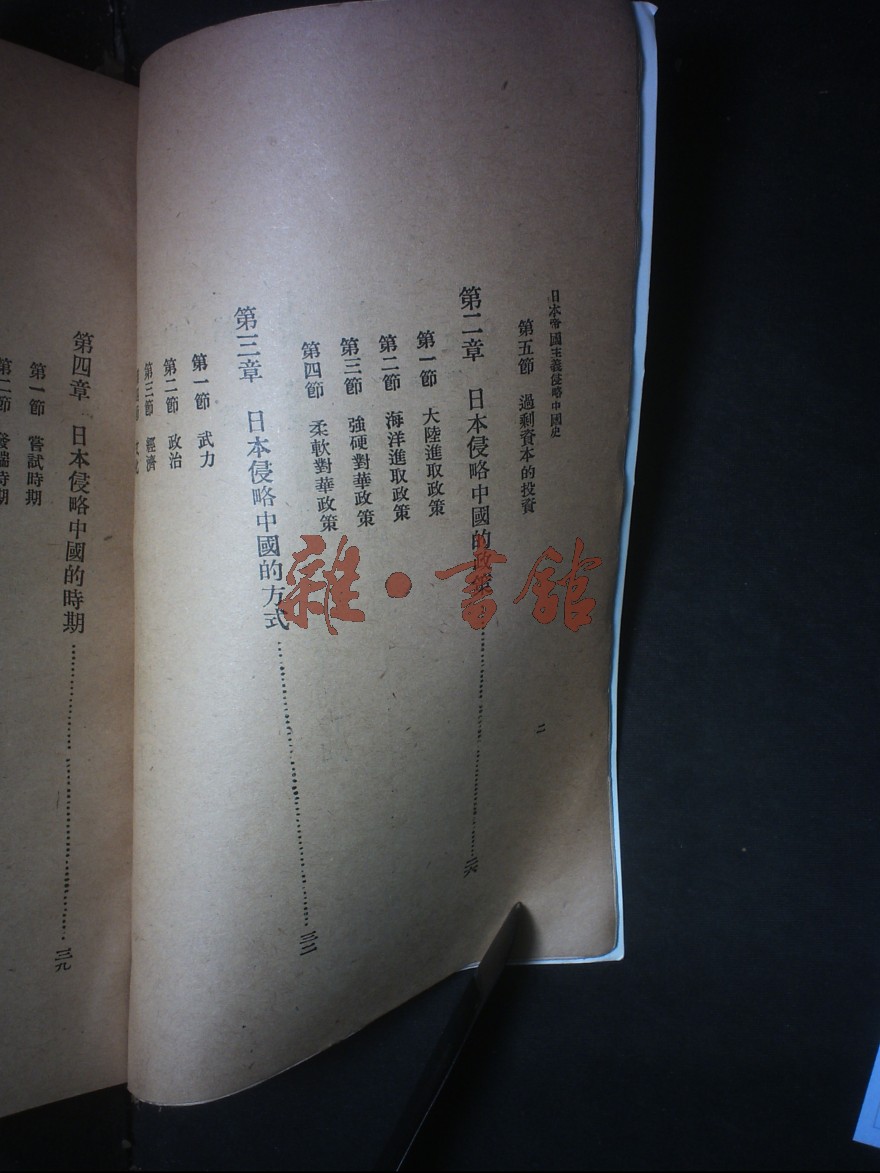 日本帝國主義侵略中國史
第五節 過剩資本的投資
第二章 日本侵略中國的政策……二六
第一節 大陸進取政策
第二節 海洋進取政策
第三節 強硬對華政策
第四節 柔軟對華政策
第三章 日本侵略中國的方式……三二
第一節 武力
第二節 政治
第三節 經濟
二
第四章 日本侵略中國的時期……三九
第一節 嘗試時期
第二節 發端時期
雜·書館